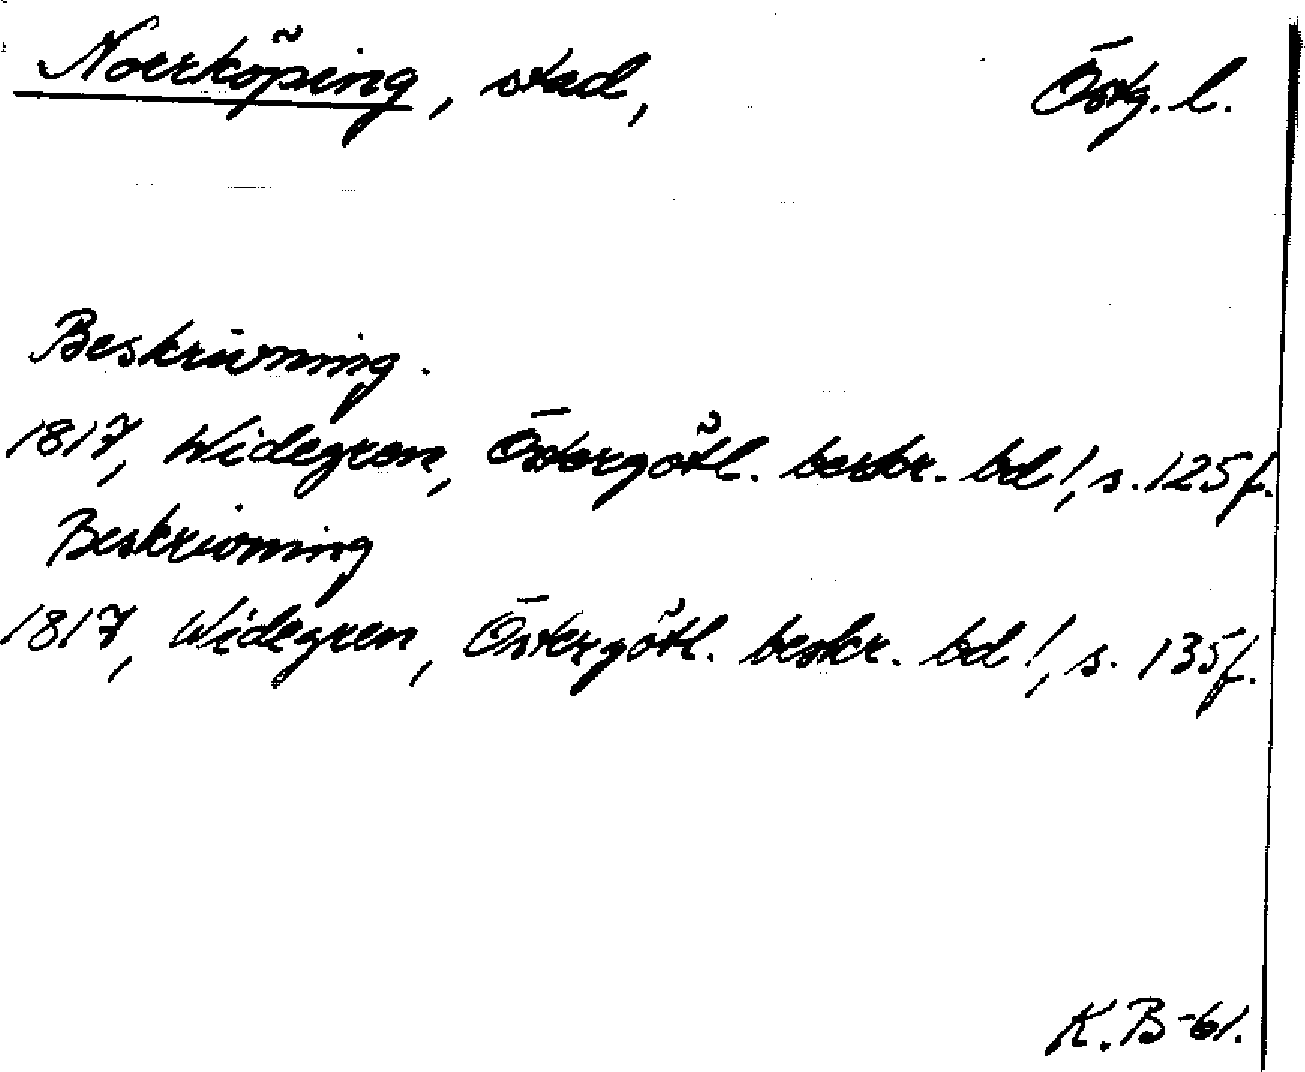 Norrköping, stad, Östg. l.
Beskrivning.
1817, Widegren, Östergötl. beskr. bd 1, s. 125 f.
Beskrivning
1817, Widegren, Östergötl. beskr. bd 1, s. 135 f.
K. B -61.